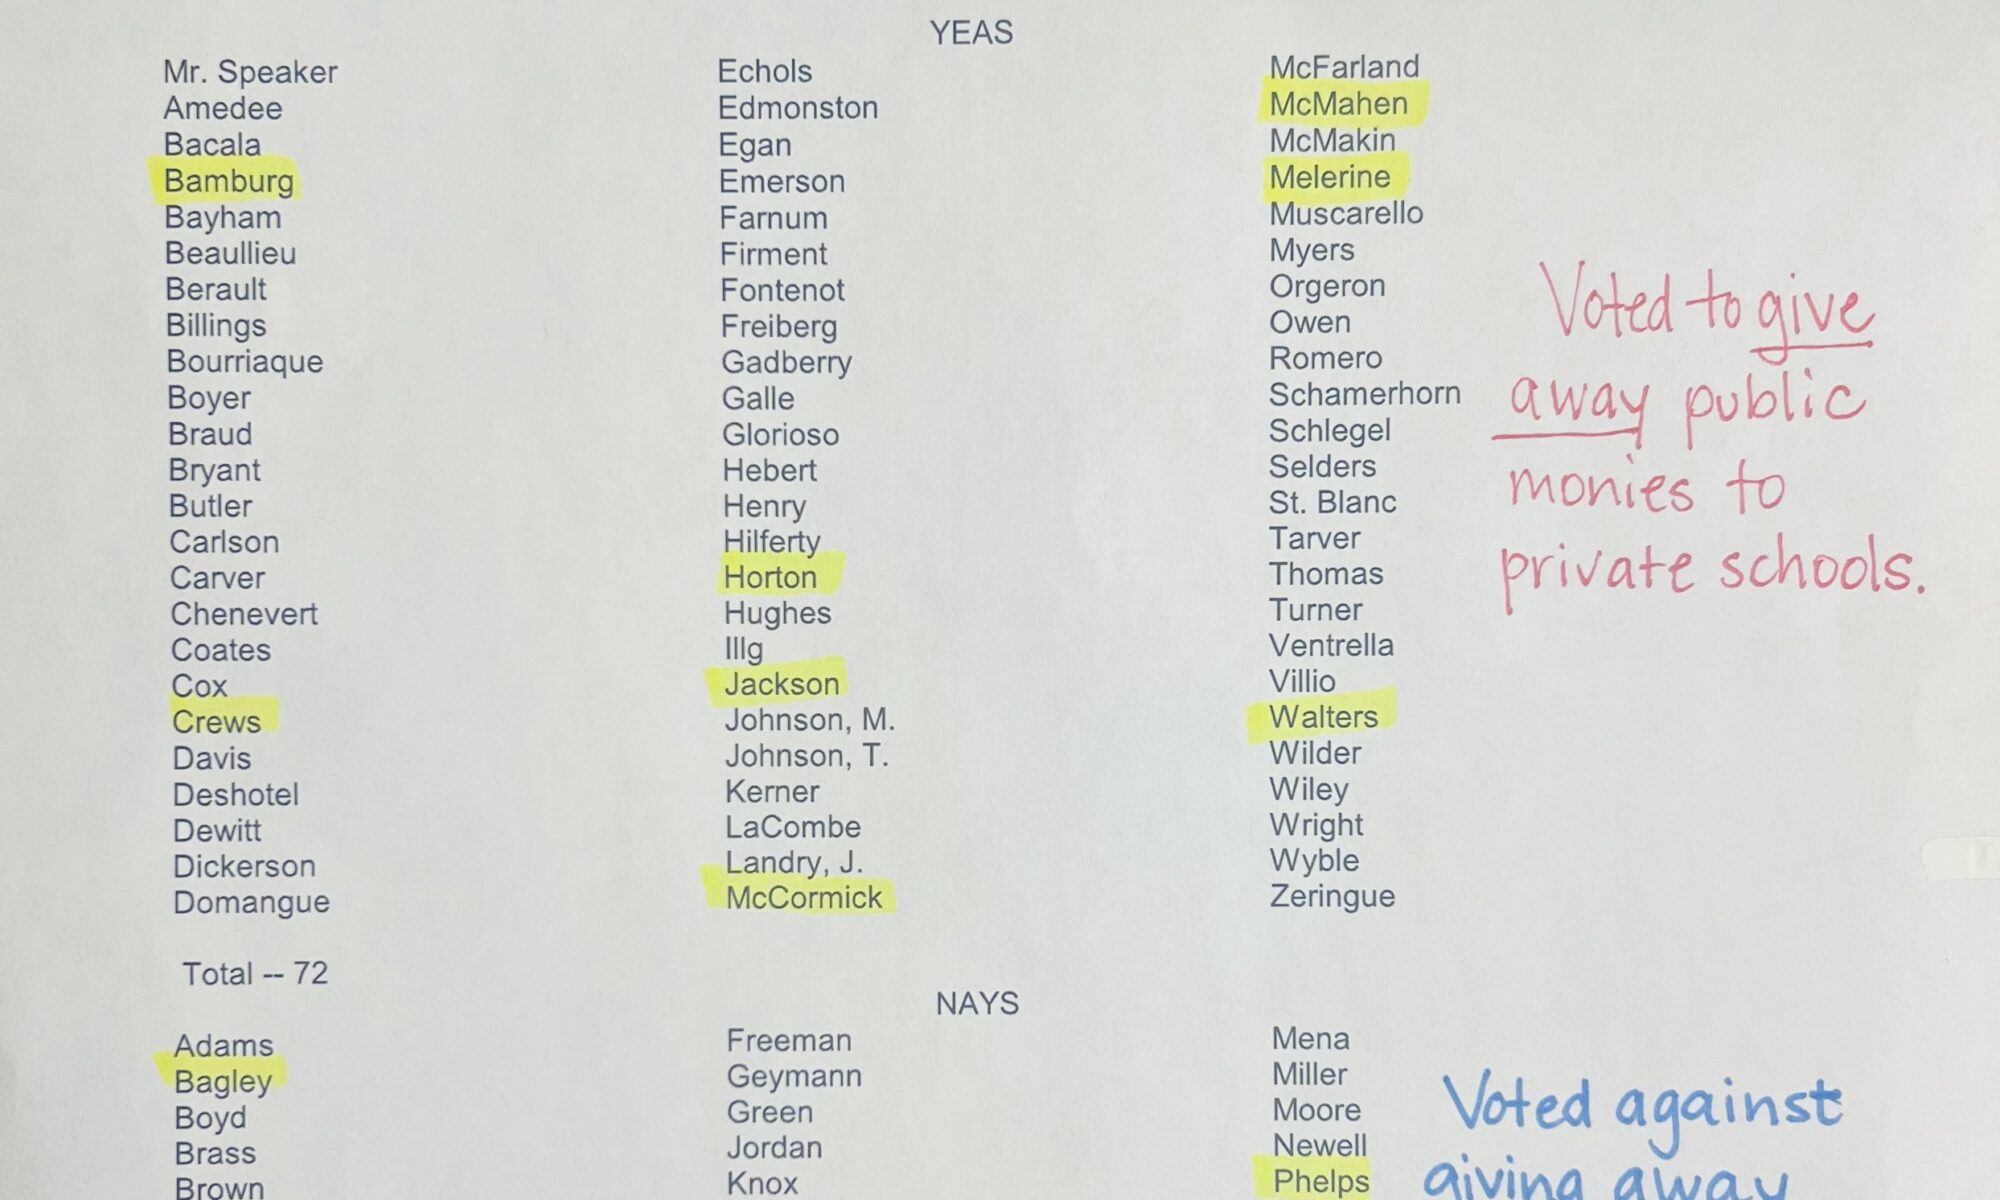 YEAS
Mr. Speaker
Amedee
Bacala
Bamburg
Bayham
Beaullieu
Berault
Billings
Bourriaque
Boyer
Braud
Bryant
Butler
Carlson
Carver
Chenevert
Coates
Cox
Crews
Davis
Deshotel
Dewitt
Dickerson
Domangue
Echols
Edmonston
Egan
Emerson
Farnum
Firment
Fontenot
Freiberg
Gadberry
Galle
Glorioso
Hebert
Henry
Hilferty
Horton
Hughes
Illg
Jackson
Johnson, M.
Johnson, T.
Kerner
LaCombe
Landry, J.
McCormick
McFarland
McMahen
McMakin
Melerine
Muscarello
Myers
Orgeron
Owen
Romero
Schamerhorn
Schlegel
Selders
St. Blanc
Tarver
Thomas
Turner
Ventrella
Villio
Walters
Wilder
Wiley
Wright
Wyble
Zeringue
Voted to give
away public
monies to
private schools.
Total -- 72
NAYS
Adams
Bagley
Boyd
Brass
Brown
Freeman
Geymann
Green
Jordan
Knox
Mena
Miller
Moore
Newell
Phelps
Voted against
giving away